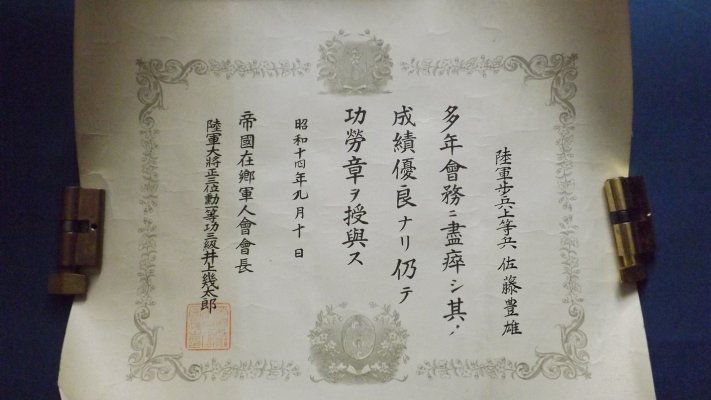 陸軍歩兵上等兵 佐藤豊雄
多年會務ニ盡瘁シ其ノ
成績優良ナリ仍テ
功勞章ヲ授與ス
昭和十四年九月十日
帝國在郷軍人會會長
陸軍大將正三位勳一等功三級井上幾太郎